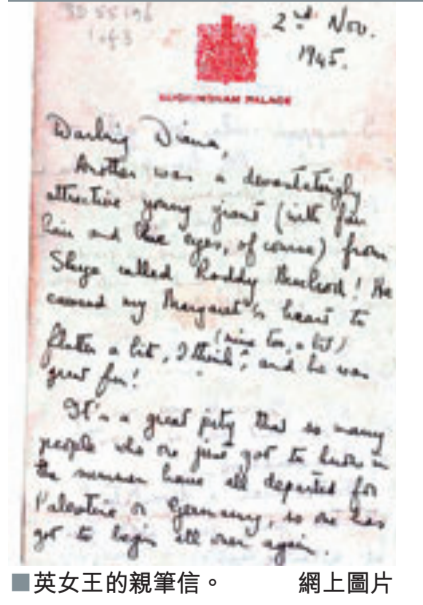 2nd Nov.
1945.
BUCKINGHAM PALACE
Darling Diana,
Another was a devastatingly
attractive young giant (with fair
hair and blue eyes, of course) from
Skye called Roddy Macleod! He
caused my Margaret's heart to
(mine too, a bit)
flutter a bit, I think, and he was
great fun!
It's a great pity that so many
people who one just got to know in
the summer have all departed for
Palestine or Germany, so one has
got to begin all over again.
■英女王的親筆信。 網上圖片